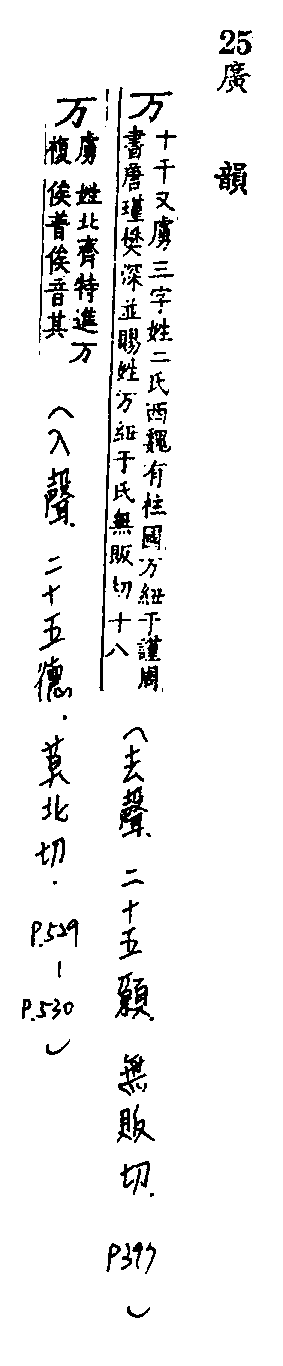 25
廣韻
万 十千又虜三字姓二氏西魏有柱國万紐于謹周
書唐瑾樊深並賜姓万紐于氏無販切十八
(去聲 二十五願 無販切. P397)
万 虜複姓北齊特進万
俟普俟音其
(入聲 二十五德. 莫北切. P.529-P.530)